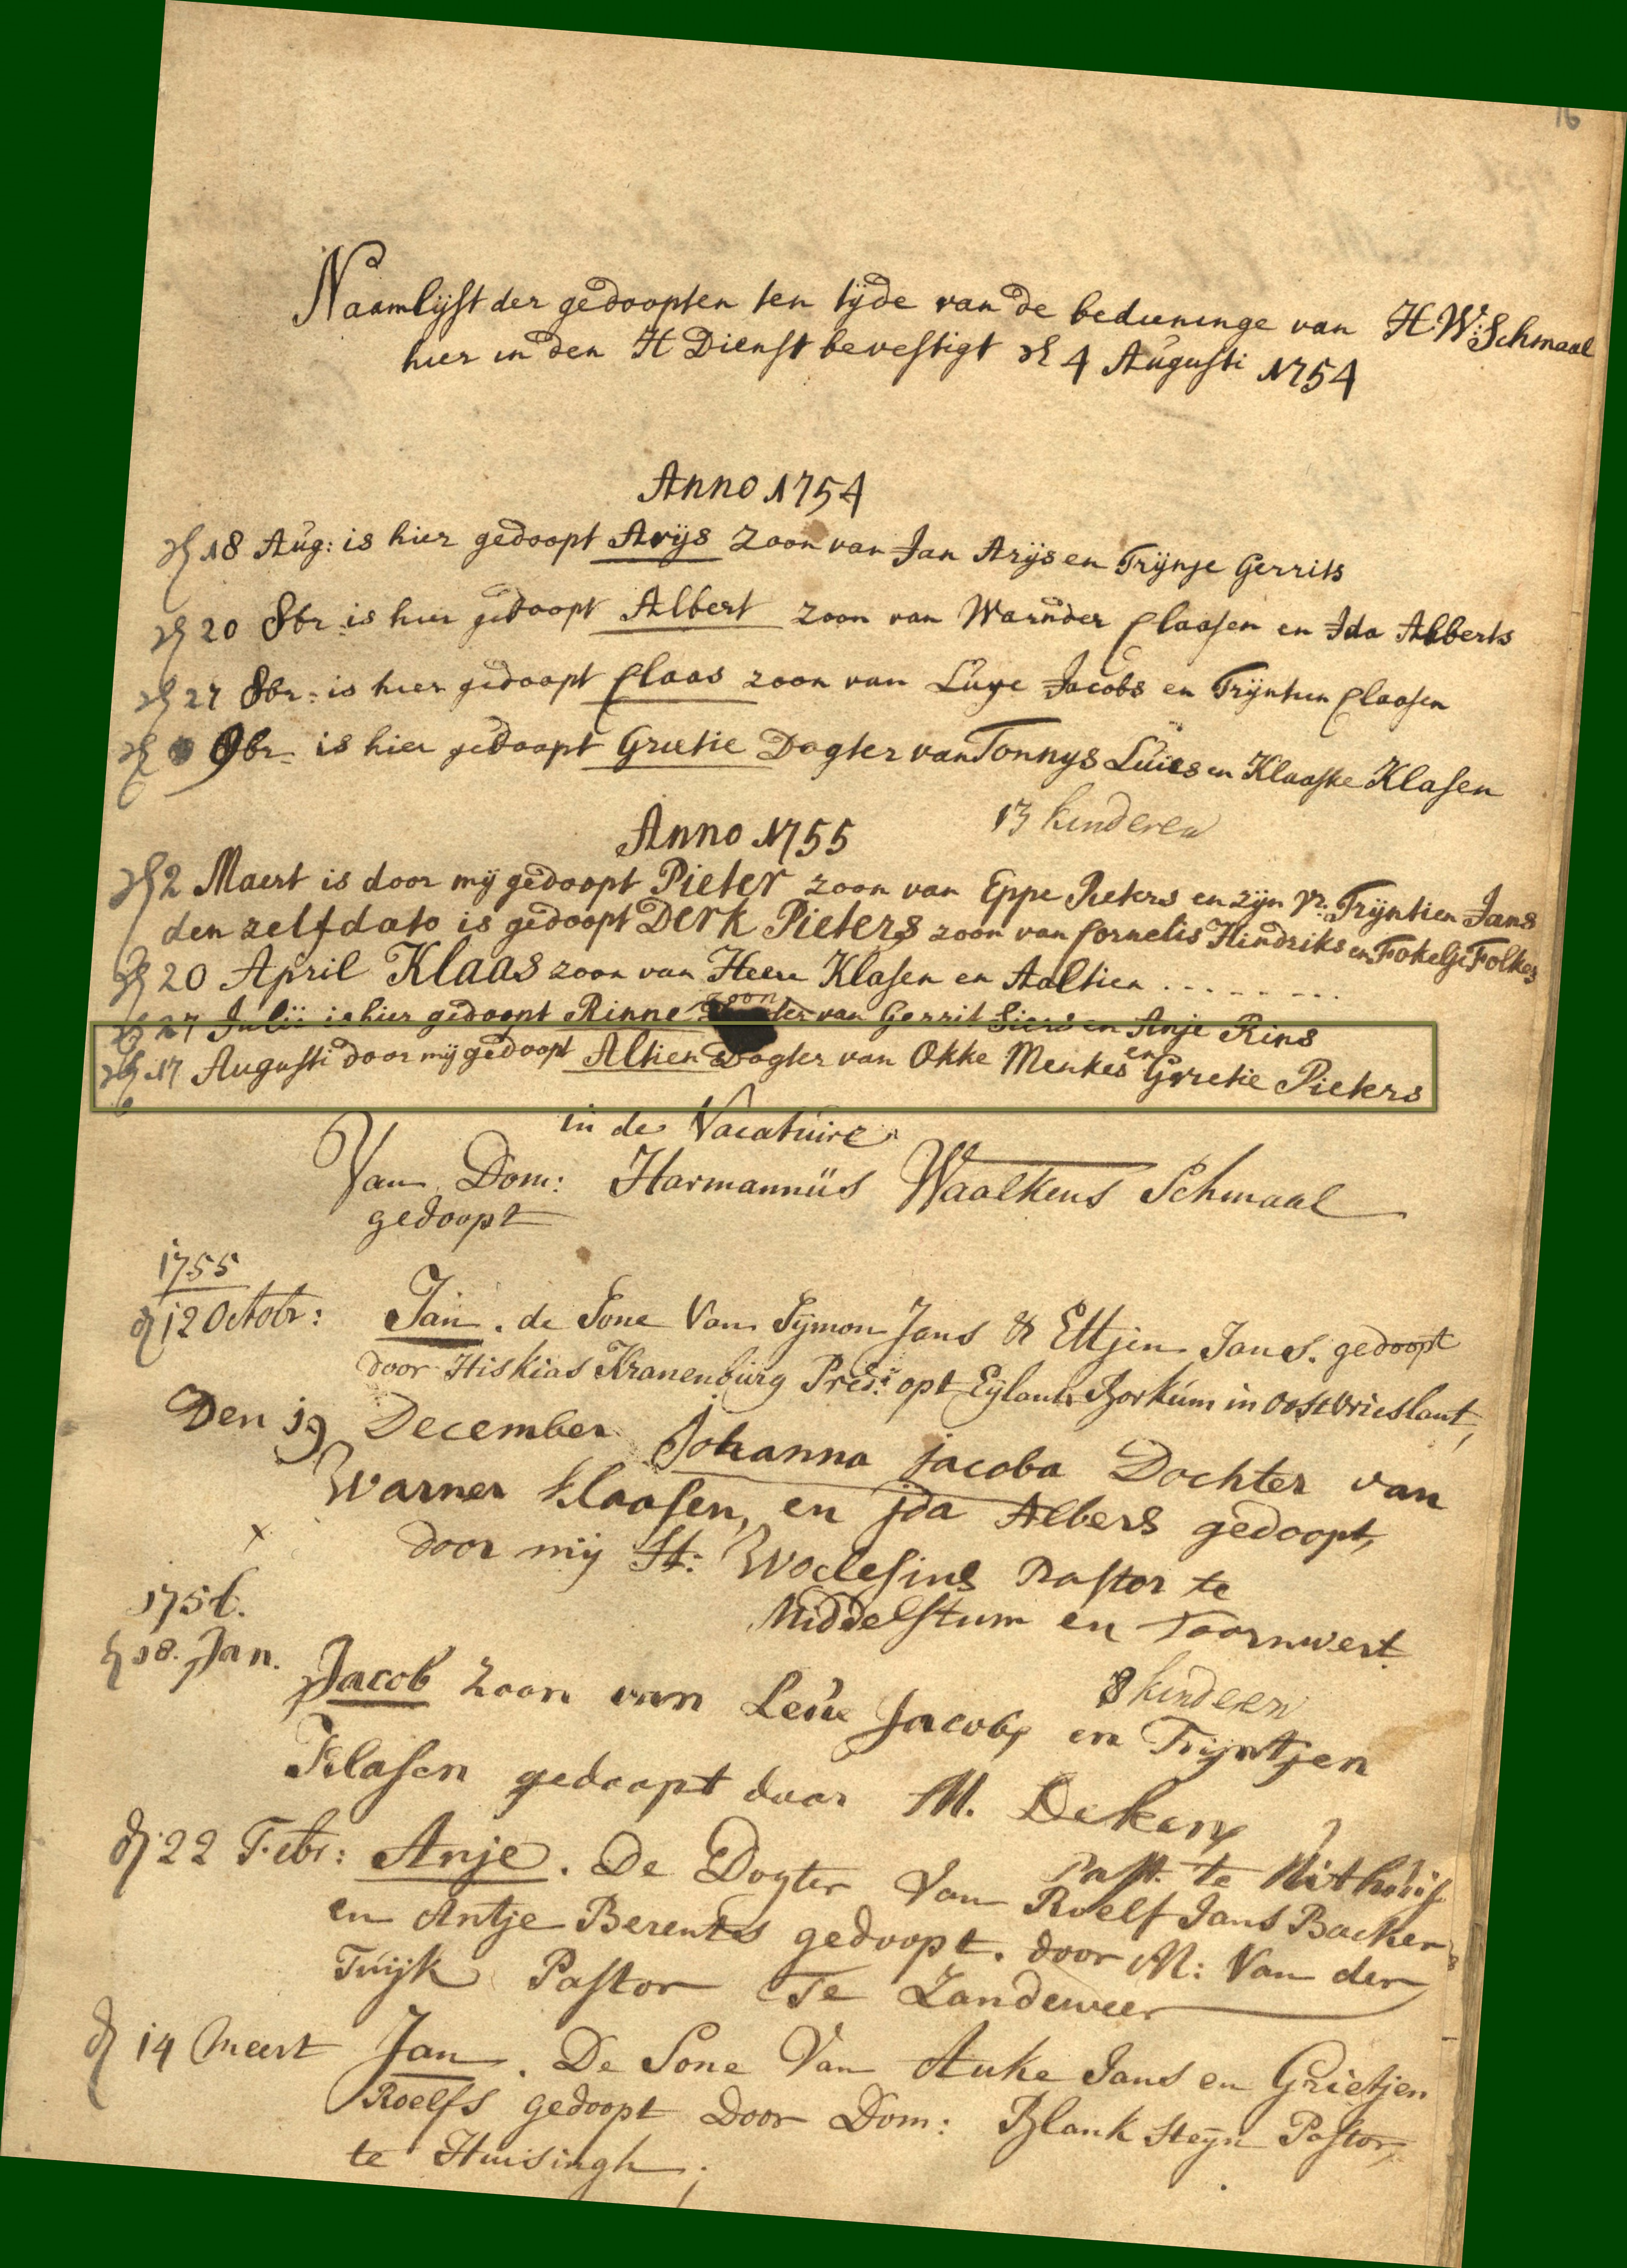 16
Naamlijst der gedoopten ten tijde van de bedieninge van H: W: Schmaal
hier in den H Dienst bevestigt d 4 Augusti 1754
Anno 1754
d 18 Aug: is hier gedoopt Arijs zoon van Jan Arijs en Trijnje Gerrits
d 20 8br is hier gedoopt Albert zoon van Warnder Claasen en Ida Alberts
d 27 8br: is hier gedoopt Claas zoon van Luye Jacobs en Trijntien Claasen
d 9br is hier gedoopt Grietie Dogter van Tonnys Luies en Klaaske Klasen
13 kinderen
Anno 1755
d 2 Maert is door mij gedoopt Pieter zoon van Eppe Pieters en zijn vr: Trijntien Jans
den zelfdato is gedoopt Derk Pieters zoon van Cornelis Hindriks en Fokelje Folkes
d 20 April Klaas zoon van Heere Klasen en Aaltien . . . . . . . .
d 27 Julii is hier gedoopt Rinne zoon van Gerrit Siers en Anje Rins
d 17 Augusti door mij gedoopt Altien Dogter van Okke Menkes en Gretie Pieters
in de Vacature
Van Dom: Harmannüs Waalkens Schmaal
gedoopt
1755
d 12 Octobr: Jan. de Sone Van Sijmon Jans & Ettjen Jans. gedoopt
door Hiskias Kranenburg Pred: opt Eijlant Borkum in oostvrieslant,
Den 19 December Johanna jacoba Dochter van
Warner klaasen, en jda Albers gedoopt,
door mij H: Wolesius Pastor te
Middelstum en Toornwert
1756.
8 kinderen
d 18. Jan. Jacob zoon van Leue Jacobs en Trijntjen
Klasen gedoopt door M. Dekens
Past. te Uithuis
d 22 Febr: Anje. De Dogter Van Roelf Jans Backer
en Antje Berents gedoopt. door M: Van der
Tuijk Pastor Te Zandeweer
d 14 Meert Jan. De Sone Van Auke Jans en Grietjen
Roelfs gedoopt Door Dom: Blank Steijn Pastor,
te Huisingh;